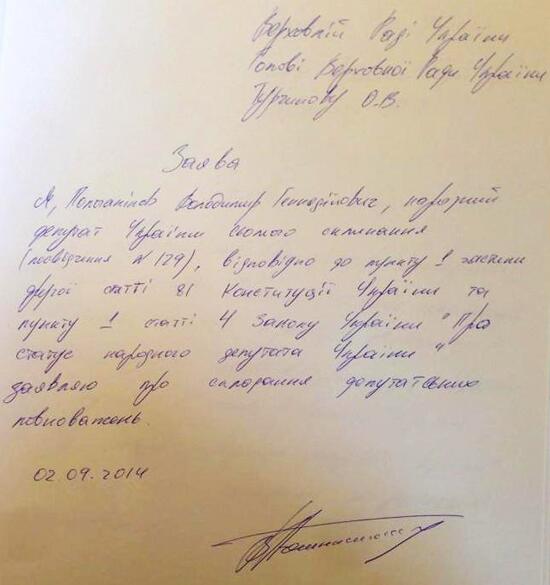 Верховній Раді України
Голові Верховної Ради України
Турчинову О.В.
Заява
Я, Володимир Геннадійович, народний
депутат України сьомого скликання
(посвідчення N 129), відповідно до пункту 1 частини
другої статті 81 Конституції України та
пункту 1 статті 4 Закону України "Про
статус народного депутата України"
заявляю про складання депутатських
повноважень.
02.09.2014